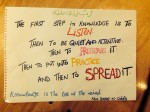 THE FIRST STEP IN KNOWLEDGE IS TO
LISTEN
THEN TO BE QUIET AND ATTENTIVE
THEN TO PRESERVE IT
THEN TO PUT INTO PRACTICE
AND THEN TO SPREAD IT
Knowledge is the life of the mind